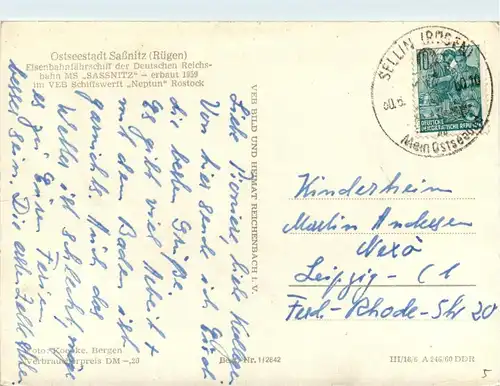 Ostseestadt Saßnitz (Rügen)
Eisenbahnfährschiff der Deutschen Reichs-
bahn MS „SASSNITZ" - erbaut 1959
im VEB Schiffswerft „Neptun" Rostock
Liebe Pioniere, liebe Kollegen
Von hier sende ich Euch
die besten Grüße.
Es gibt viel Arbeit +
mit dem Baden ist
garnichts. Auch das
Wetter ist schlecht, möge
es zu Euren Ferien
besser sein. Die alten Zelte
Foto: Koepke, Bergen
Verbraucherpreis DM -,20
VEB BILD UND HEIMAT REICHENBACH i. V.
Best.-Nr. 1/2642
SELLIN (RÜGEN)
Mein Ostseebad
DEUTSCHE
DEMOKRATISCHE REPUBLIK
Kinderheim
Martin Andersen
Nexö
Leipzig - C 1
Ferd-Rhode-Str 20
III/18/6 A 246/60 DDR
5